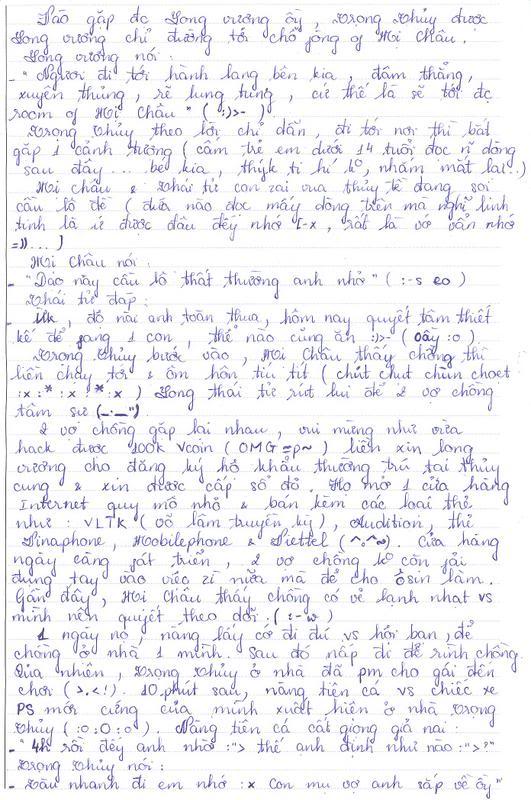 Sao gặp đc Long vương ồy, Trọng Thủy được
Long vương chỉ đường tới chỗ jống of Mỵ Châu.
Long vương nói:
- "Ngươi đi tới hành lang bên kia, đâm thẳng,
xuyên thủng, rẽ lung tung, cứ thế là sẽ tới đc
room of Mị Châu" ( :)>- )
Trọng Thủy theo lời chỉ dẫn, đi tới nơi thì bắt
gặp 1 cảnh tượng ( cấm trẻ em dưới 14 tuổi đọc n~ dòng
sau đây... bé kia, thýk ti hí ko, nhắm mắt lại..)
Mị Châu & thái tử con zai vua thủy tề đang soi
cầu lô đề ( đứa nào đọc mấy dòng trên mà nghĩ linh
tinh là ứ được đâu đếy nhớ [-x, rất là vớ vẩn nhớ
=))...)
Mị Châu nói:
- "Dạo này cầu lô thất thường anh nhở" ( :-s eo)
Thái tử đáp:
- Uk, đồ nải anh toàn thua, hôm nay quyết tâm thiết
kế để jang 1 con, thể nào cũng ăn :)>- ( Oầy :o)
Trọng Thủy bước vào, Mị Châu thấy chồng thì
liền chạy tới & ôm hôn tíu tít ( chút chut chùn choet
:x :* :x :* :x ) Long thái tử rút lui để 2 vợ chồng
tâm sự (_._")
2 vợ chồng gặp lại nhau, vui mừng như vừa
hack được 100k Vcoin ( OMG =p~ ) liền xin long
vương cho đăng ký hộ khẩu thường trú tại thủy
cung & xin được cấp sổ đỏ. Họ mở 1 cửa hàng
Internet quy mô nhỏ & bán kèm các loại thẻ
như : VLTK ( võ lâm truyền kỳ), Audition, thẻ
Vinaphone, Mobilephone & Viettel (^.^~). Cửa hàng
ngày càng fát triển, 2 vợ chồng ko còn fải
dùng tay vào việc zì nữa mà để cho ôsin làm.
Gần đây, Mị Châu thấy chồng có vẻ lạnh nhạt vs
mình nên quyết theo dõi. ( :-w )
1 ngày nọ, nàng lấy cớ đi dú vs hội bạn, để
chồng ở nhà 1 mình. Sau đó nấp đi để rình chồng.
Qủa nhiên, Trọng Thủy ở nhà đã pm cho gái đến
chơi (>.<!). 10 phút sau, nàng tiên cá vs chiếc xe
PS mới cứng của mình xuất hiện ở nhà Trọng
Thủy ( :o :O :o ). Nàng tiên cá cất giọng giả nai:
- "4h rồi đếy anh nhở :"> thế anh định như nào :">?"
Trọng Thủy nói:
- Vào nhanh đi em nhớ :x Con mụ vợ anh sắp về ồy"